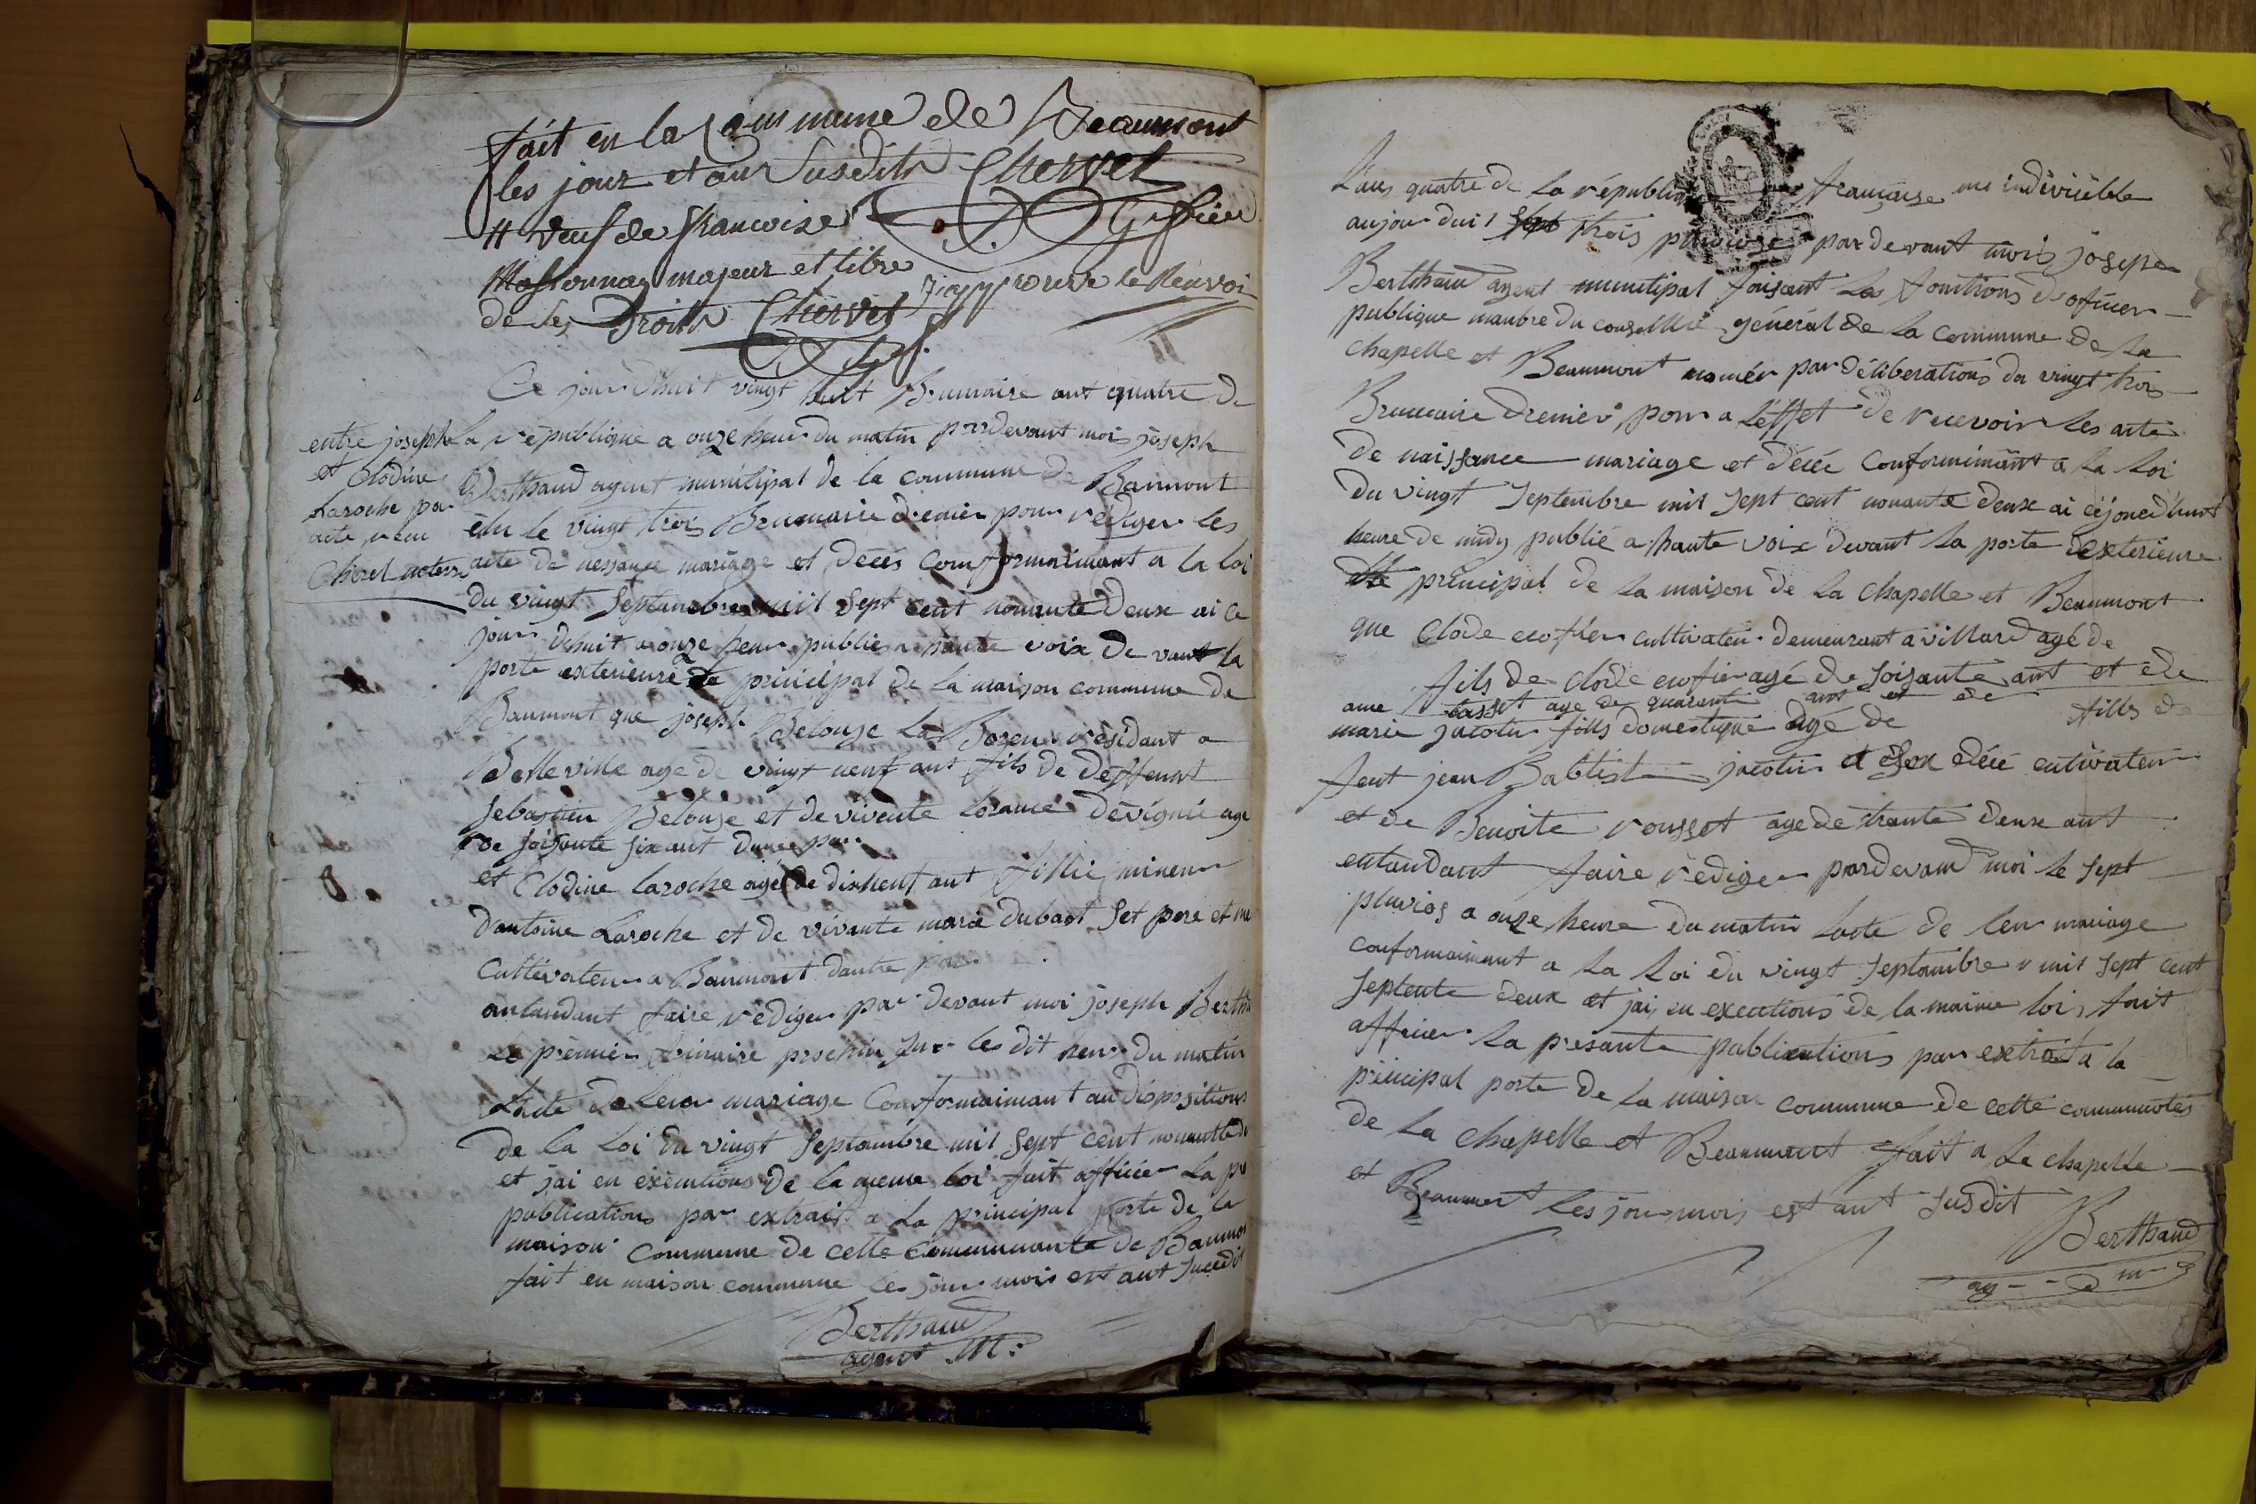 fait en la Commune de Beaumont
les jour et an Susdits Chervet
# veuf de francoise Greffier
Massonnay majeur et libre J'approuve le Renvoi
de ses Droits Chervet
Ce jour dhuit vingt huit Brumaire ant quatre de
la république a onze heur du matin pardevant moi joseph
Berthaud agent municipal de la commune de Baumont
élu le vingt trois Brumaire dernier pour rédiger les
acte de nessance mariage et décés comformaimant a la loi
du vingt Septambre mil Sept cent nonante deux ai ce
jour dhuit a onze heur publier a haute voix devant la
porte exterieure principal de la maison commune de
Baumont que joseph Belouze La résidant a
Belleville age de vingt neuf ant fils de deffeunt
Sebastien Belouze et de vivente devignie age
de soisante six ant dune par
et Clodine laroche agé de dixneuf ant fillie mineur
dantoine Laroche et de vivante marie dubost Set pere et me
Cultivateur a Baumont dautre par
antandant faire rediger par devant moi joseph Bertha
Le premier frimaire prochin les dit heur du matin
Lacte de leur mariage Comformaimant au dispositions
de la Loi du vingt Septambre mil Sept cent nonante de
et jai en exécutions de la meme loi fait afficér La pr
publications par extrait a la principal porte de la
maison commune de cette communauté de Baumon
fait en maison commune les jour mois est ant Sucedit
Berthaud
agent M:
entre joseph
et Clodine
Laroche par
acte
Cheret
L'ans quatre de la républi française une indivisible
aujourduit trois pluviose pardevant mois josepe
Berthaud agent municipal faisant les fonctions d'oficier
publique manbre du conseille général de la Commune de la
chapelle et Beaumont nomér par déliberations du vingt trois
Brumaire dernier pour a L'effet de recevoir les acte
de naissance mariage et décéc conformimant a la Loi
du vingt Septembre mil Sept cent nonante deux ai céjourdhuit
heure de midy publié a haute voix devant la porte exterieure
principal de la maison de la chapelle et Beaumont
que Clode cultivateur demeurant a villard agé de
fils de Clode agé de soisante ant et de
anne age de quarante ant et de
marie jacotin fills domestique agé de fills de
feut jean Babtiste jacotin décé cultivateur
et de Benoite rousset age de trante deux ant
entandant faire rédiger pardevand moi le sept
pluvios a onze heure du matin Lacte de leur mariage
conformaimant a la Loi du vingt Septambre mil Sept cent
Septente deux et jai en executions de la maime loi, fait
afficer la presante publications par extrait a la
principal porte de la maison commune de cette communotés
de la chapelle et Beaumont fait a la chapelle
et Beaumont les jour mois est ant Susdit
Berthaud